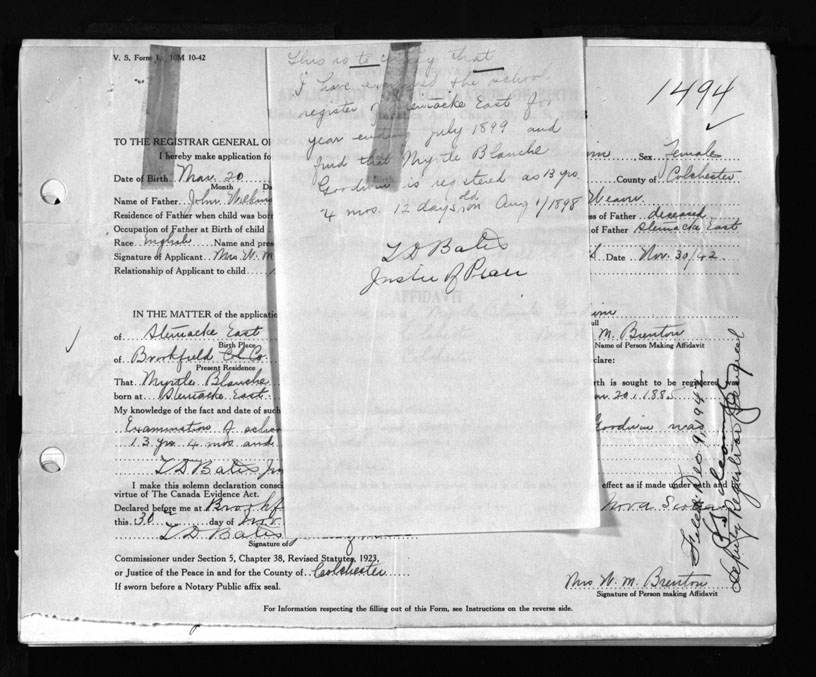 V. S. Form 10M 10-42
1494
This is to certify that
I have examined the school
register of Stewiacke East for
year ending July 1899 and
find that Myrtle Blanche
Goodwin is registered as 13 yrs.
4 mos. 12 days old, on Aug 1/1898
L D Bates
Justice of Peace
TO THE REGISTRAR GENERAL OF
I hereby make application fo
Sex Female
Date of Birth Mar. 20
Month
County of Colchester
Name of Father John
Weavr
Residence of Father when child was born
ss of Father deceased
Occupation of Father at Birth of child
of Father Stewiacke East
Race English Name and pres
Date Nov. 30/42
Signature of Applicant Mrs W. M
Relationship of Applicant to child
AFFIDAVIT
IN THE MATTER of the applicatio
of Stewiacke East
M. Brenton
Birth Place
Name of Person Making Affidavit
of Brookfield Col. Co.
Present Residence
clare:
That Myrtle Blanche
birth is sought to be registered was
born at Stewiacke East
20, 1885
My knowledge of the fact and date of such
Examination of school
Goodwin was
13 yrs. 4 mos and
L D Bates
I make this solemn declaration consc
effect as if made under oath and
virtue of The Canada Evidence Act.
Declared before me at Brookf
Nova Scotia
this 30 day of Nov
L. D. Bates
Signature of
Commissioner under Section 5, Chapter 38, Revised Statutes, 1923,
or Justice of the Peace in and for the County of Colchester
If sworn before a Notary Public affix seal.
Mrs W. M. Brenton
Signature of Person making Affidavit
For Information respecting the filling out of this Form, see Instructions on the reverse side.
Filed Dec. 9, 1942
Deputy Registrar General